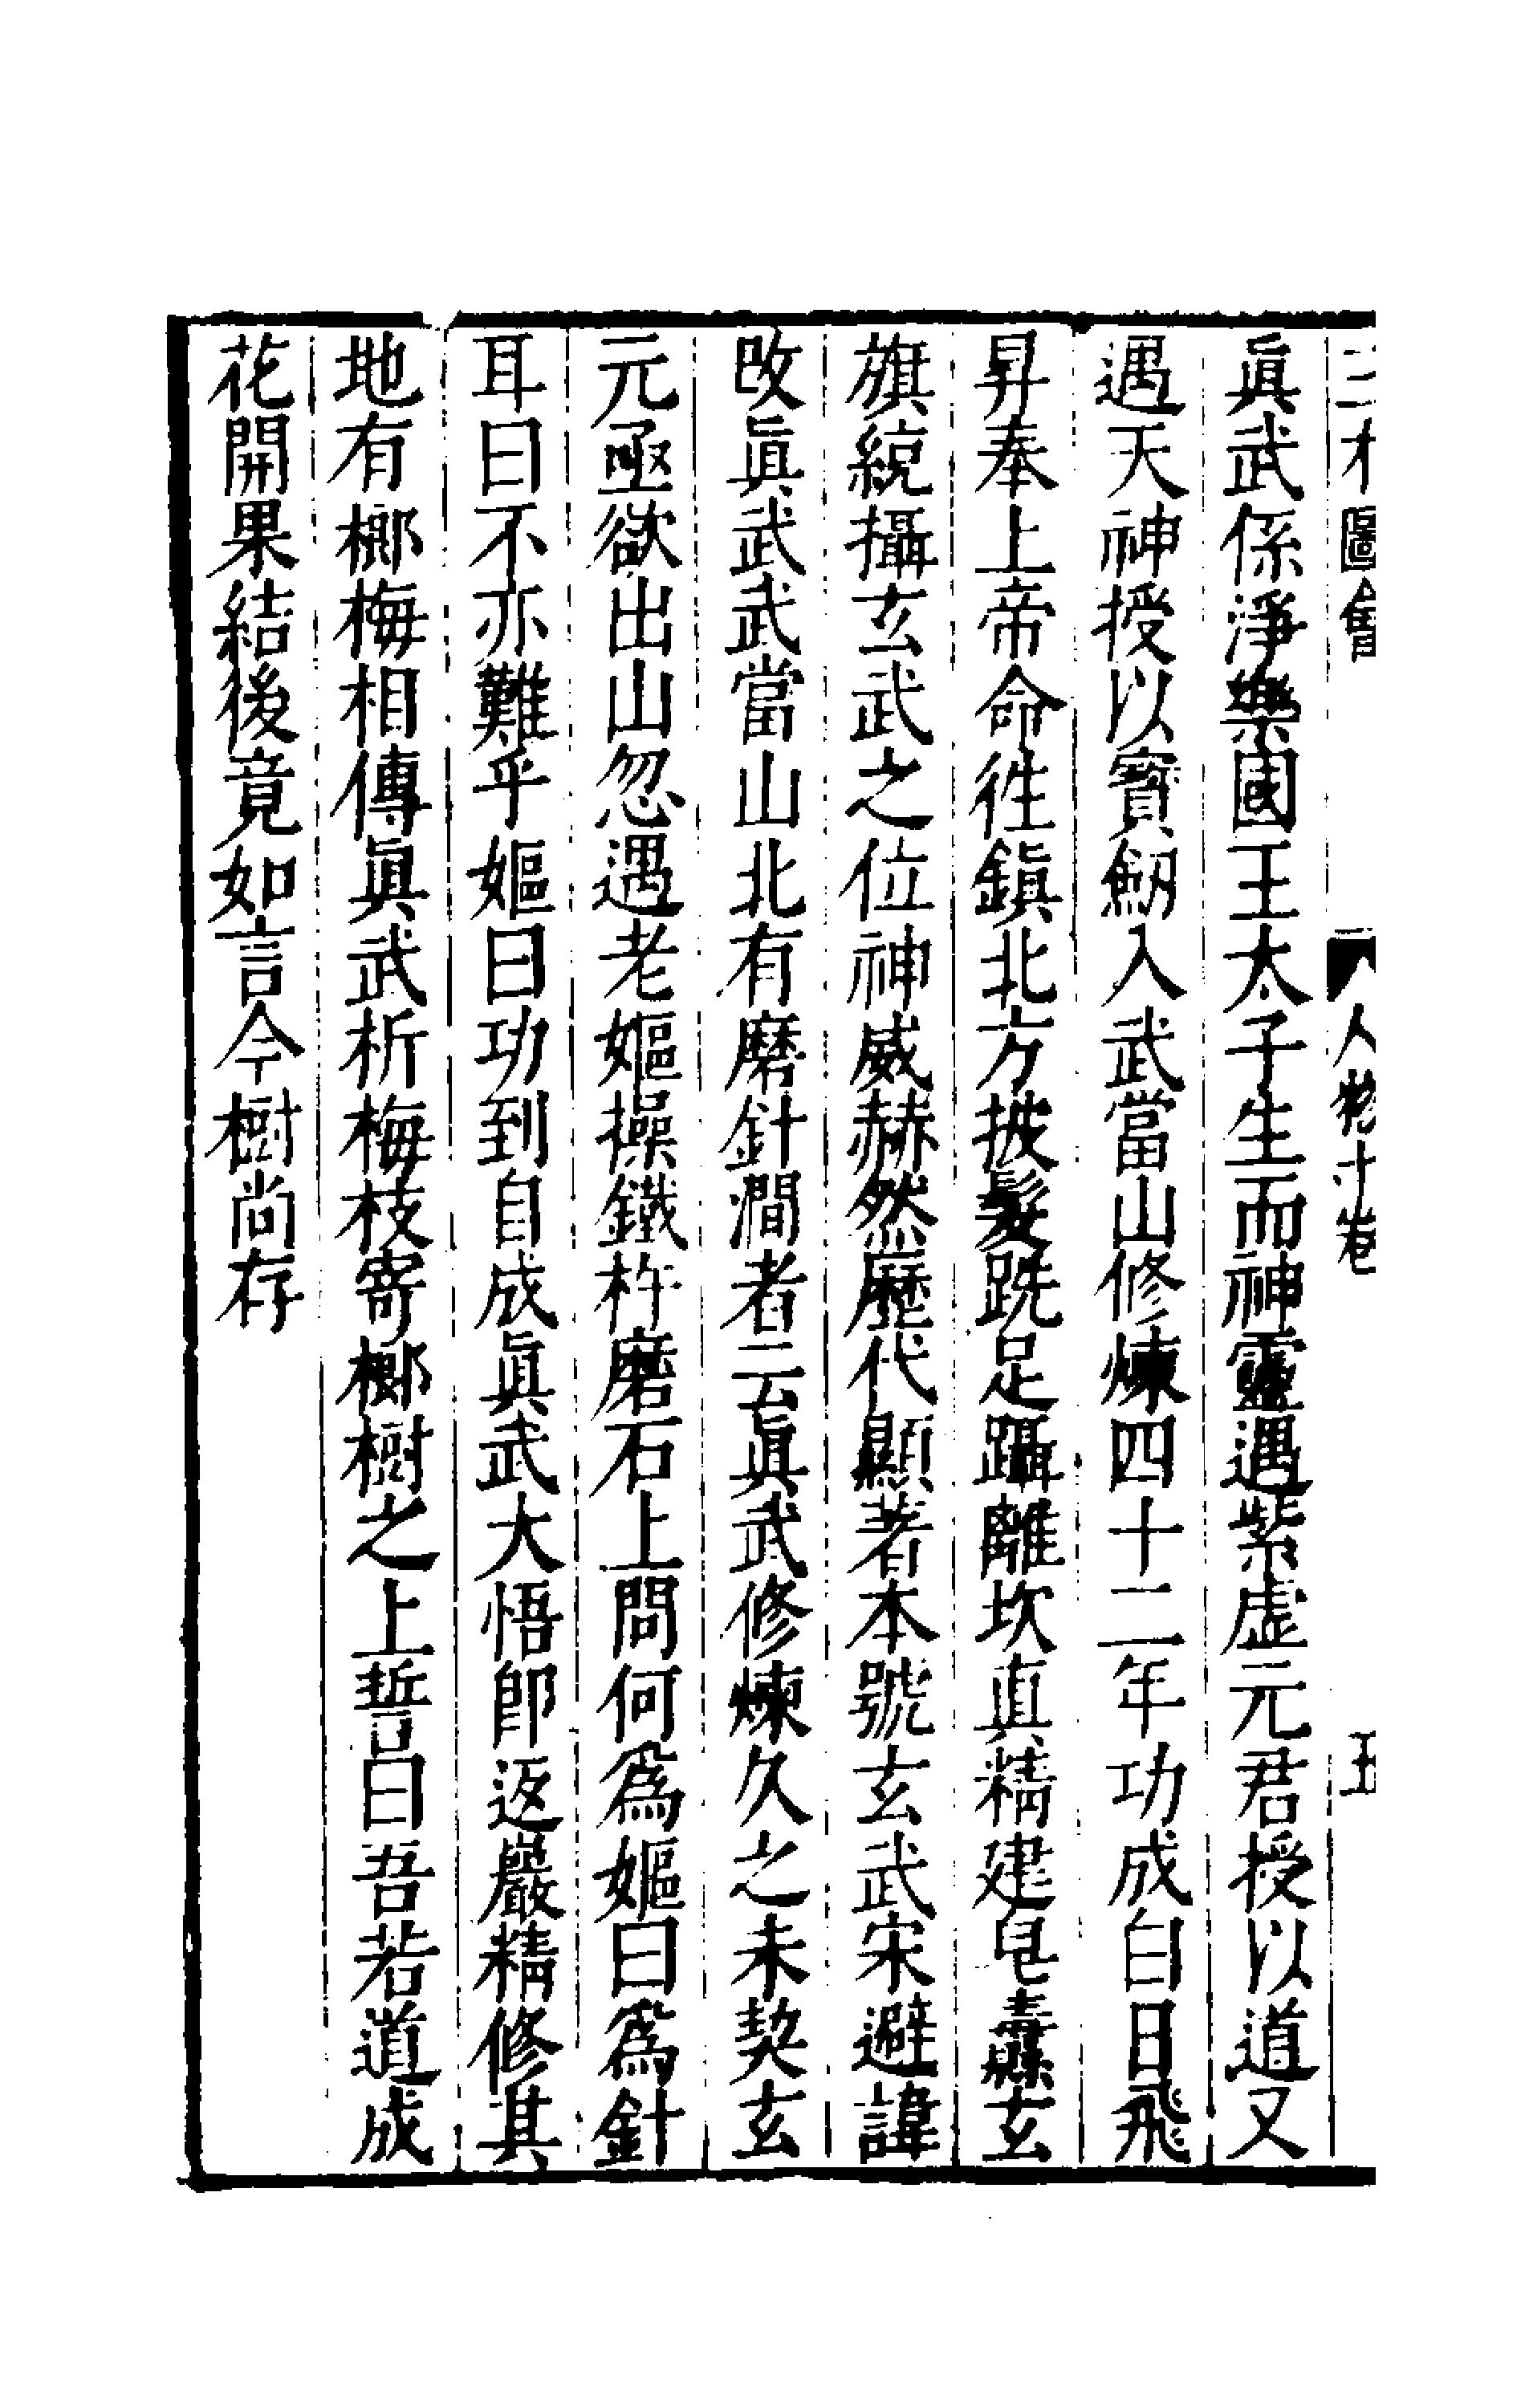 三才圖會 人物十卷 五
眞武係淨樂國王太子生而神靈遇紫虛元君授以道又
遇天神授以寶劒入武當山修煉四十二年功成白日飛
昇奉上帝命徃鎮北方披髮跣足躡離坎真精建皂纛玄
旗統攝玄武之位神威赫然歷代顯著本號玄武宋避諱
改眞武武當山北有磨針澗者云眞武修煉久之未契玄
元亟欲出山忽遇老嫗操鐵杵磨石上問何爲嫗曰爲針
耳曰不亦難乎嫗曰功到自成眞武大悟卽返巖精修其
地有榔梅相傳眞武折梅枝寄榔樹之上誓曰吾若道成
花開果結後竟如言今樹尚存